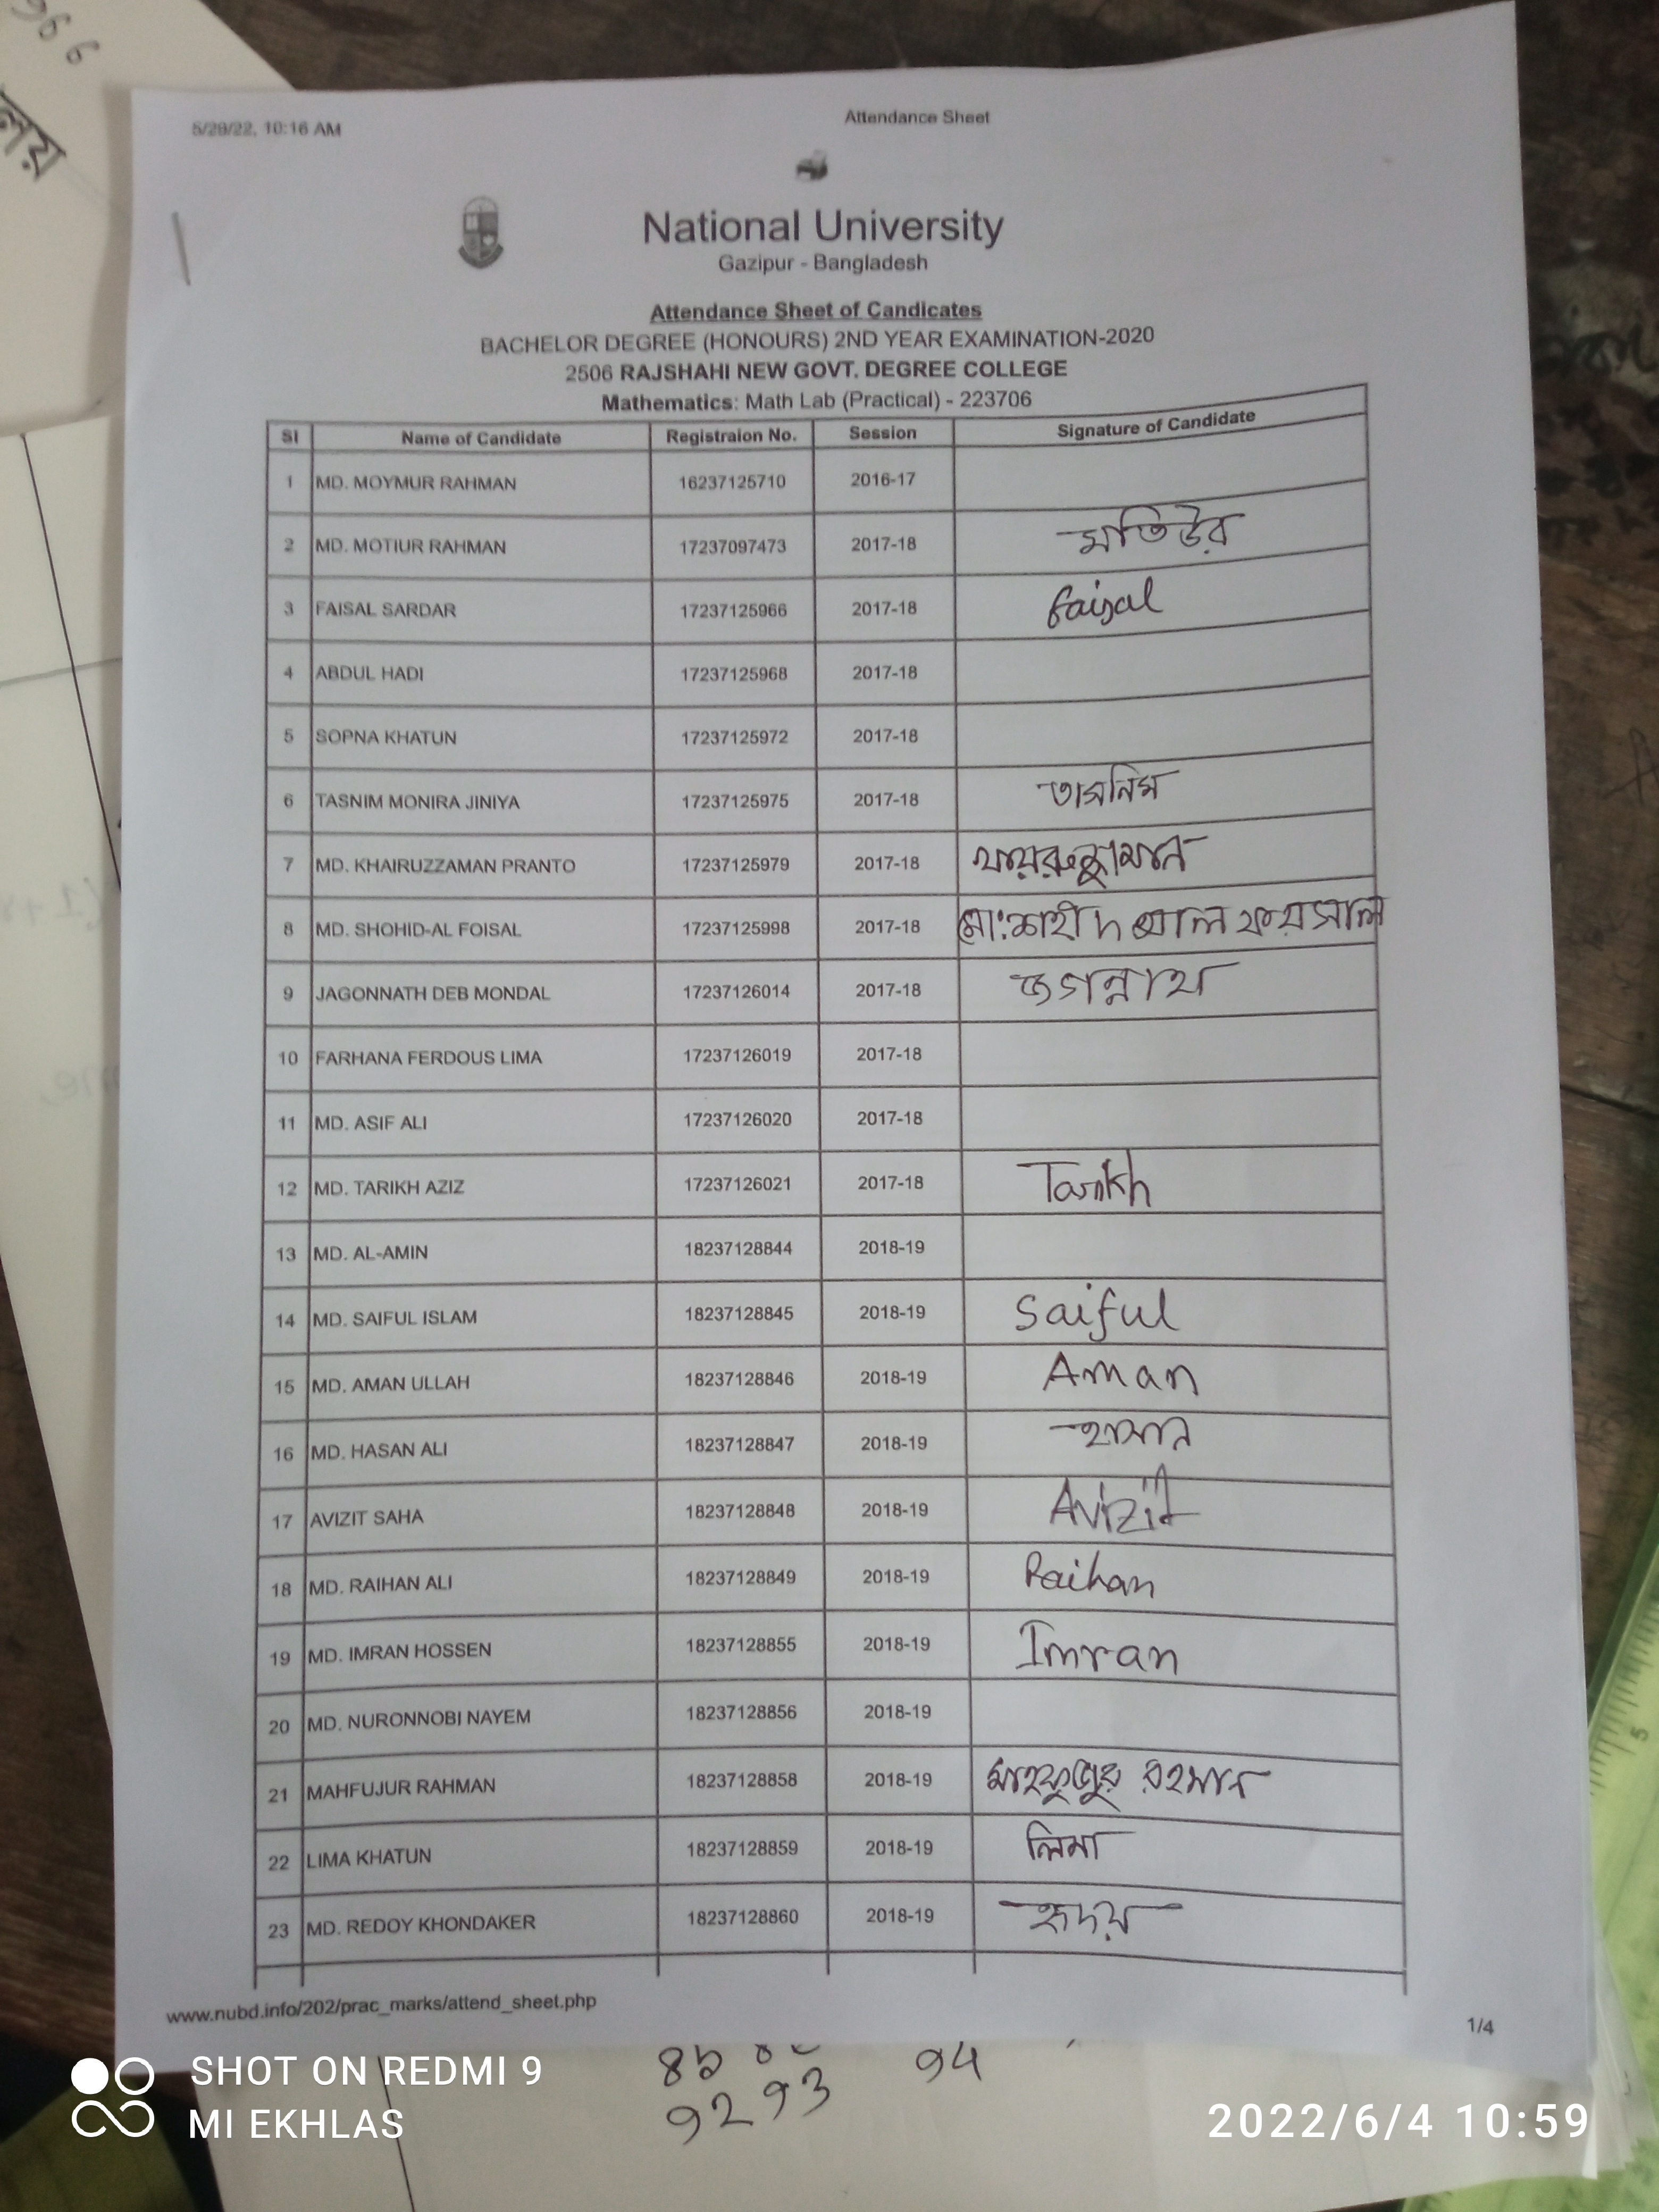 966
লয়
5/29/22, 10:16 AM Attendance Sheet
National University
Gazipur - Bangladesh
Attendance Sheet of Candicates
BACHELOR DEGREE (HONOURS) 2ND YEAR EXAMINATION-2020
2506 RAJSHAHI NEW GOVT. DEGREE COLLEGE
Mathematics: Math Lab (Practical) - 223706
Sl Name of Candidate Registraion No. Session Signature of Candidate
1 MD. MOYMUR RAHMAN 16237125710 2016-17
2 MD. MOTIUR RAHMAN 17237097473 2017-18 মতিউর
3 FAISAL SARDAR 17237125966 2017-18 Faisal
4 ABDUL HADI 17237125968 2017-18
5 SOPNA KHATUN 17237125972 2017-18
6 TASNIM MONIRA JINIYA 17237125975 2017-18 তাসনিম
7 MD. KHAIRUZZAMAN PRANTO 17237125979 2017-18 খায়রুজ্জামান
8 MD. SHOHID-AL FOISAL 17237125998 2017-18 মো: শাহীদ আল ফয়সাল
9 JAGONNATH DEB MONDAL 17237126014 2017-18 জগন্নাথ
10 FARHANA FERDOUS LIMA 17237126019 2017-18
11 MD. ASIF ALI 17237126020 2017-18
12 MD. TARIKH AZIZ 17237126021 2017-18 Tarikh
13 MD. AL-AMIN 18237128844 2018-19
14 MD. SAIFUL ISLAM 18237128845 2018-19 Saiful
15 MD. AMAN ULLAH 18237128846 2018-19 Aman
16 MD. HASAN ALI 18237128847 2018-19 হাসান
17 AVIZIT SAHA 18237128848 2018-19 Avizit
18 MD. RAIHAN ALI 18237128849 2018-19 Raihan
19 MD. IMRAN HOSSEN 18237128855 2018-19 Imran
20 MD. NURONNOBI NAYEM 18237128856 2018-19
21 MAHFUJUR RAHMAN 18237128858 2018-19 মাহফুজুর রহমান
22 LIMA KHATUN 18237128859 2018-19 লিমা
23 MD. REDOY KHONDAKER 18237128860 2018-19 হৃদয়
www.nubd.info/202/prac_marks/attend_sheet.php 1/4
94
92 93
SHOT ON REDMI 9
MI EKHLAS
2022/6/4 10:59